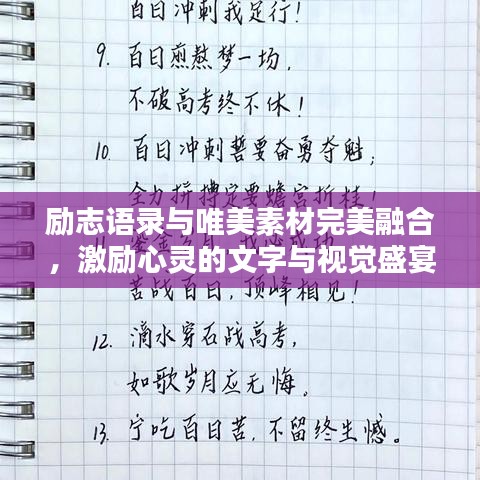 百日冲刺我足行！
9. 百日煎熬梦一场，
不破高考终不休！
10. 百日冲刺誓要奋勇夺魁；
全力拼搏定要蟾宫折桂！
励志语录与唯美素材完美融合
，激励心灵的文字与视觉盛宴
苦战百日，顶峰相见！
12. 滴水穿石战高考，
如歌岁月应无悔。
13. 宁吃百日苦，不留终生憾。